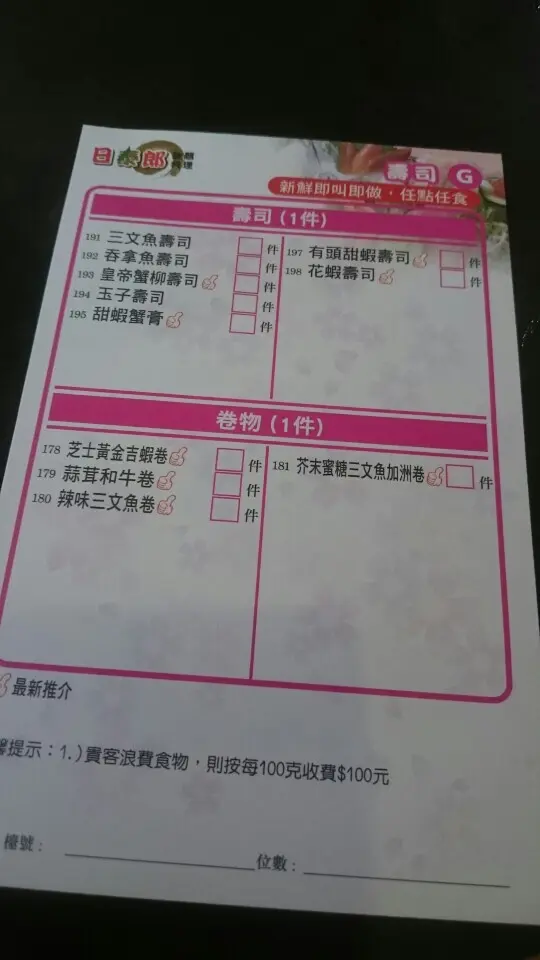 日泰郎
壽司 G
新鮮即叫即做，任點任食
壽司 (1件)
191 三文魚壽司 件
192 吞拿魚壽司 件
193 皇帝蟹柳壽司 件
194 玉子壽司 件
195 甜蝦蟹膏 件
197 有頭甜蝦壽司 件
198 花蝦壽司 件
卷物 (1件)
178 芝士黃金吉蝦卷 件
179 蒜茸和牛卷 件
180 辣味三文魚卷 件
181 芥末蜜糖三文魚加洲卷 件
最新推介
提示：1.)貴客浪費食物，則按每100克收費$100元
檯號： 位數：